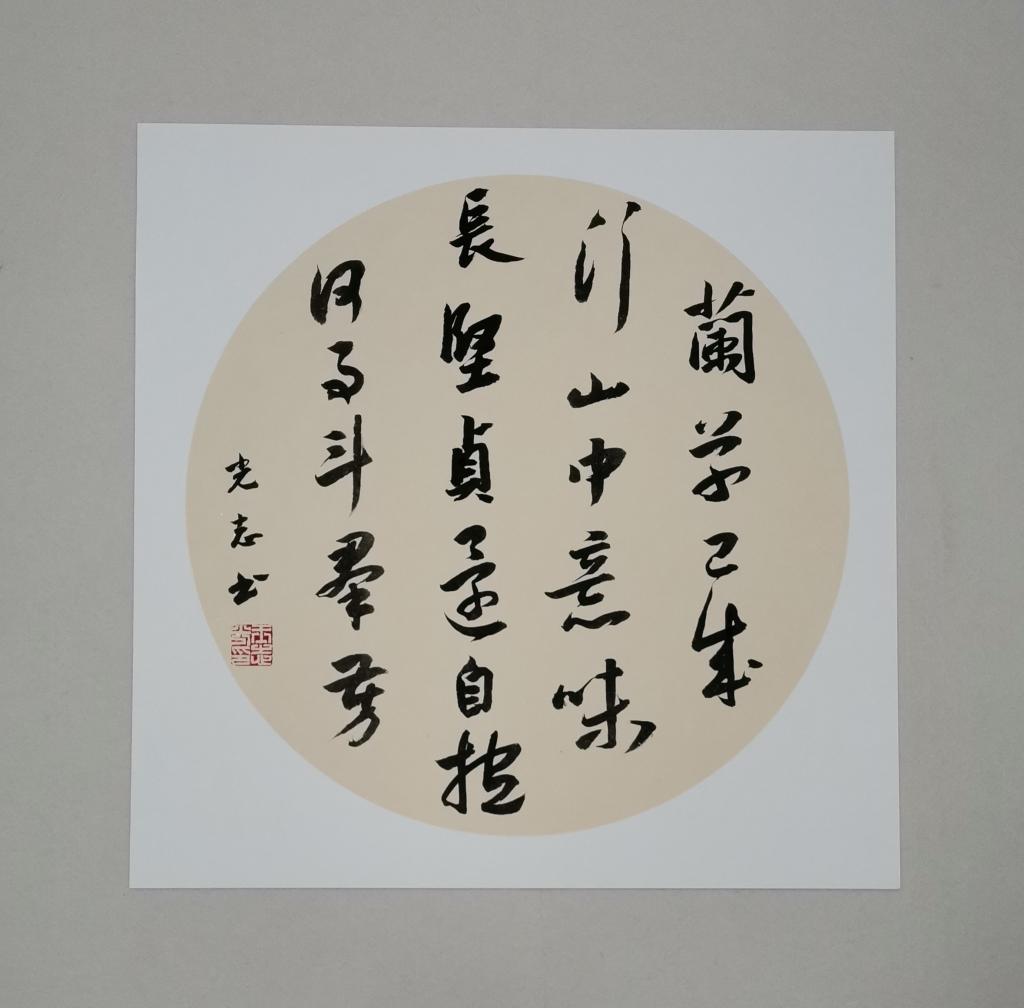 蘭草已成
行山中意味
長堅貞還自抱
何事斗羣芳
光志书